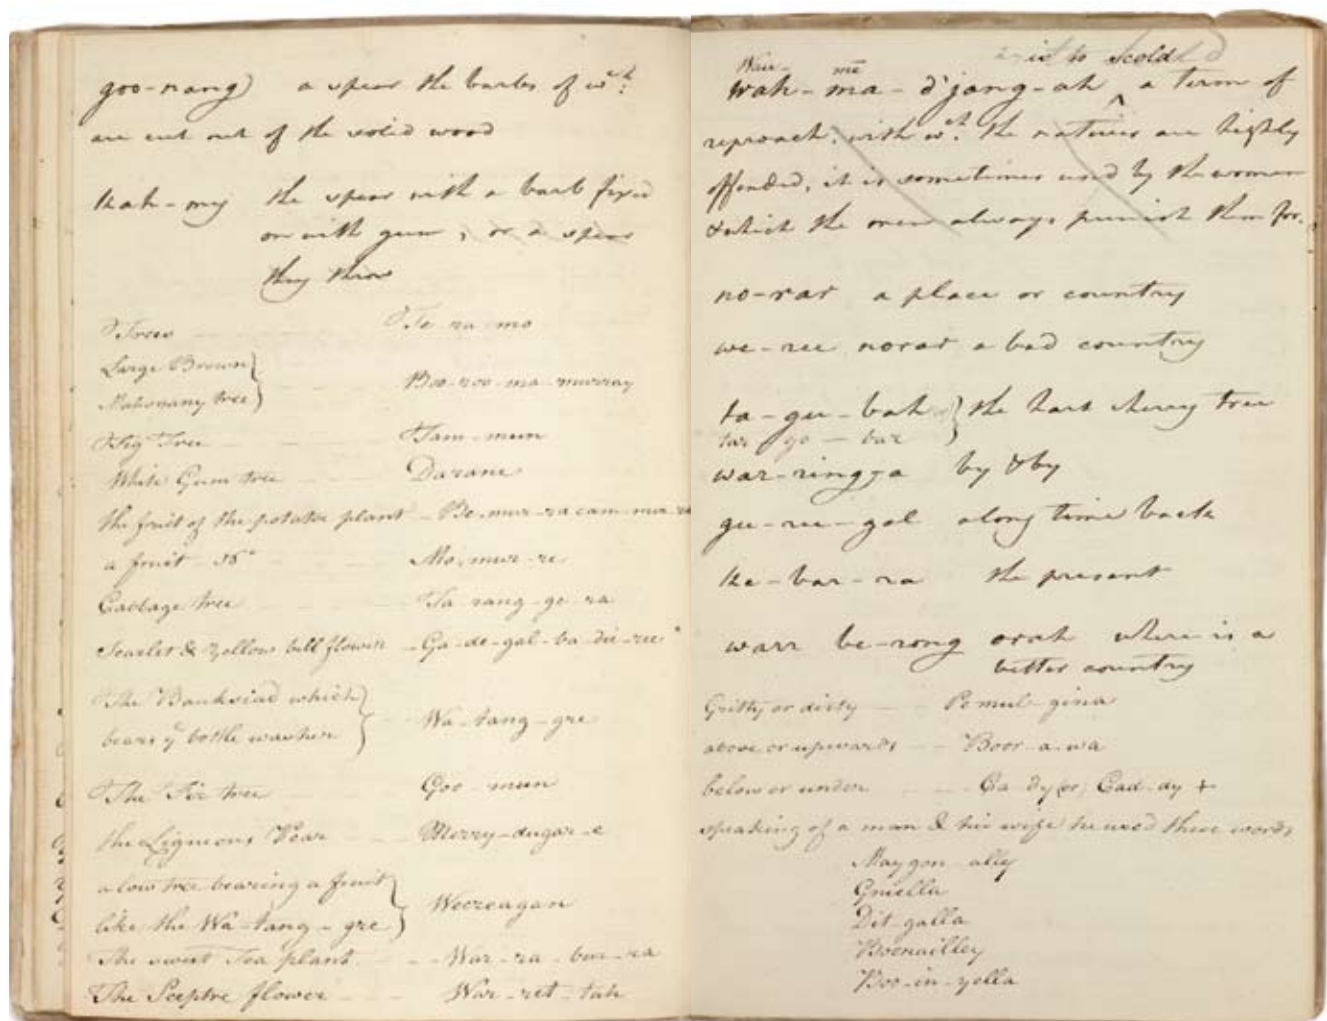 goo-nang) a spear the barbs of wch.
are cut out of the solid wood
kah-my the spear with a barb fixed
on with gum, or a spear
they throw
Trees Te-ra-mo
Large Brown
Mahogany tree} Boo-roo-ma-murray
Fig Tree Tam-mun
White Gum tree Darane
the fruit of the potatoe plant Be-mur-ra cam-mur-ra
a fruit Mo-mur-re
Cabbage tree Ta-rang-ge-ra
Scarlet & Yellow bell flower Ga-de-gal-ba-die-ree
The Banksiad which
bears ye bottle washer} Wa-tang-gre
The Fir tree Goo-mun
the Ligneous Pear Merry-dugar-e
a low tree bearing a fruit
like the Wa-tang-gre} Weereagan
The sweet Tea plant War-ra-bur-ra
The Sceptre flower War-ret-tah
is to scold
Wau- mē
wah-ma-d'jang-ah ^ a term of
reproach, with wch. the natives are highly
offended, it is sometimes used by the women
& which the men always punish them for.
no-rar a place or country
we-ree norar a bad country
ta-gu-bah} the hart cherry tree
tar go-bar
war-ringga by & by
gu-ree-gal a long time back
ke-bar-ra the present
warr be-rong orah where is a
better country
Gritty or dirty Pemul-gina
above or upwards Boor-a-wa
below or under Ca-dy or, Cad-dy +
speaking of a man & his wife he used these words
Maygon-ally
Gniella
Dit-galla
Boenailley
Boo-in-yella